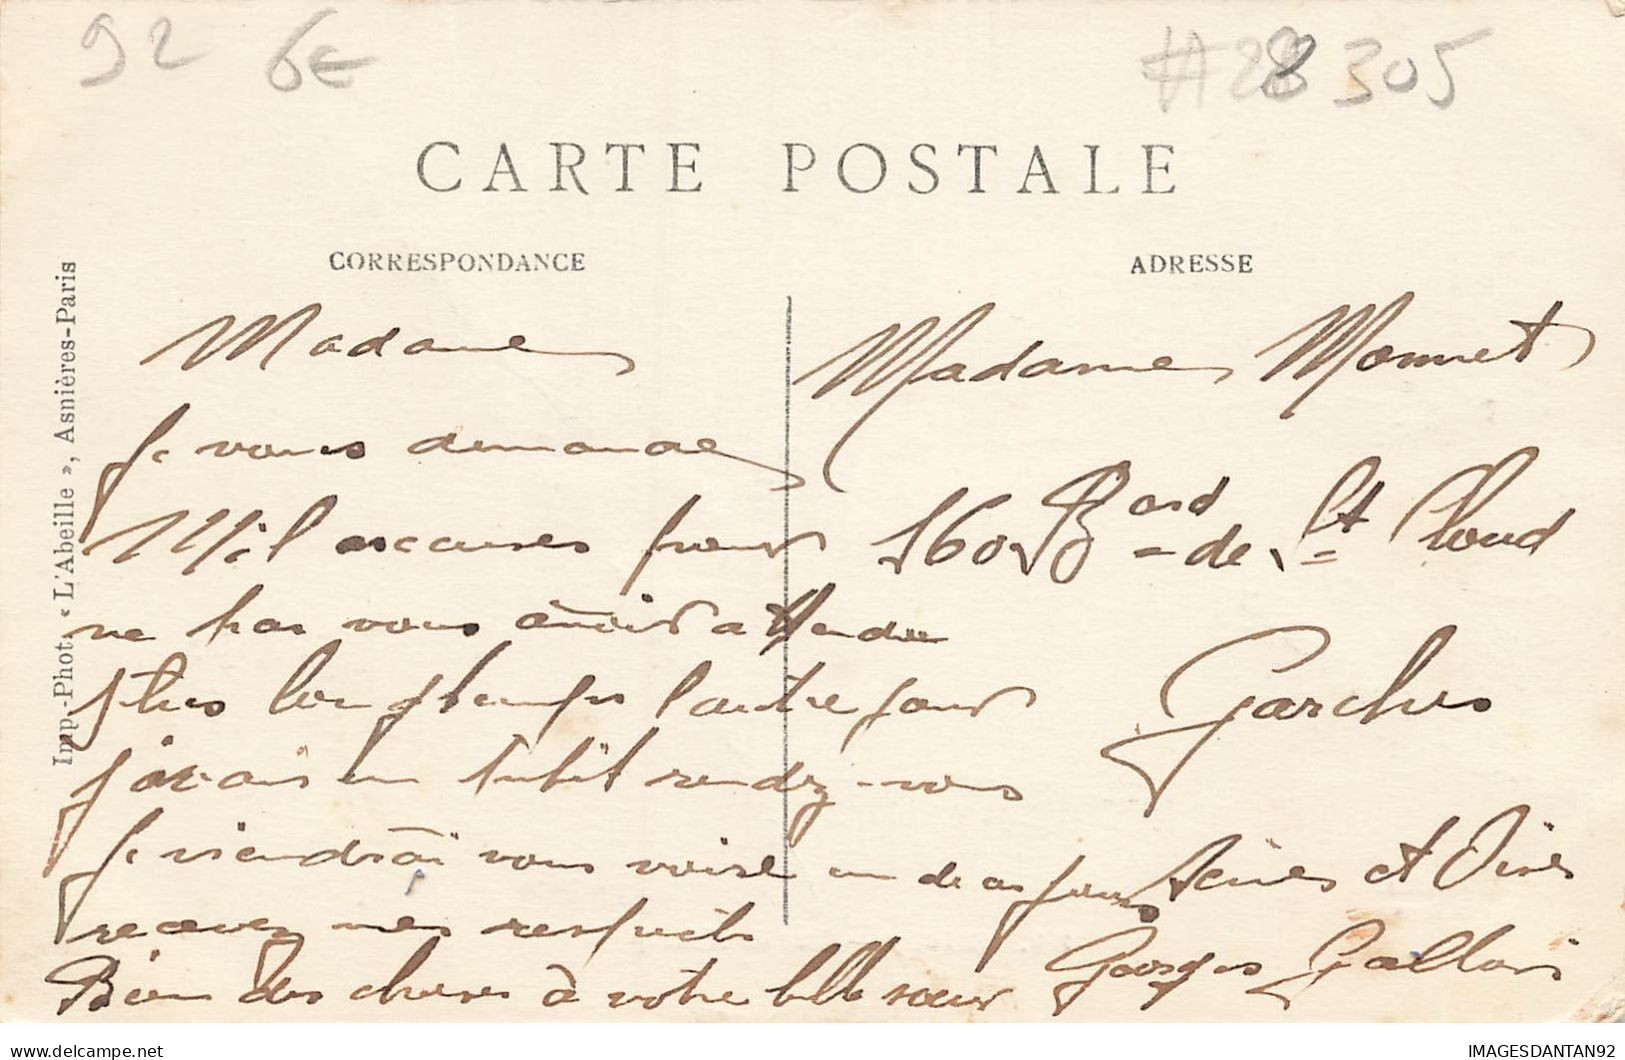 92 6€ #28305
CARTE POSTALE
CORRESPONDANCE
ADRESSE
Imp.-Phot. « L'Abeille », Asnières-Paris
Madame
je vous demande
Mil excuses pour
ne pas vous avoir attendu
plus longtemps l'autre jour
j'avais un subit rendez-vous
je viendrai vous voire un de ces jours
recevez mes respects
Bien des choses à votre belle sœur
Georges Gallois
Madame Monnet
160 Bard de St Cloud
Garches
Seines et Oises
IMAGESDANTAN92
delcampe.net